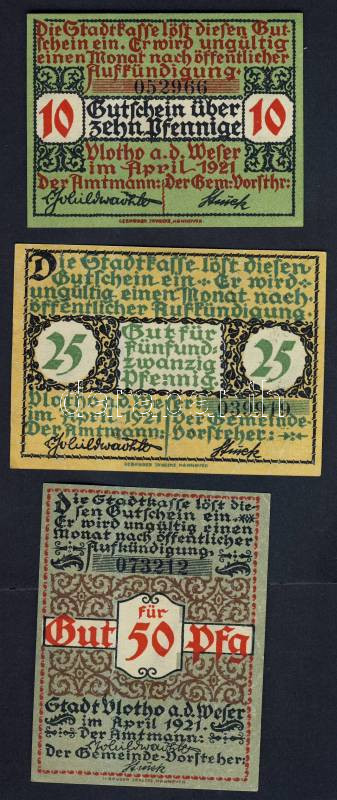 Die Stadtkasse löst diesen Gut-
schein ein. Er wird ungültig
einen Monat nach öffentlicher
Aufkündigung.
052966
10 Gutschein über 10
zehn Pfennige
Vlotho a.d. Weser
im April 1921
Der Amtmann: Der Gem: Vorsthr:
GEBRÜDER JÄNECKE, HANNOVER
Die Stadtkasse löst diesen
Gutschein ein Er wird
ungültig einen Monat nach
öffentlicher Aufkündigung.
25 Gut für 25
fünfund-
zwanzig
Pfennig.
Vlotho Weser
im 1921 039919
Der Amtmann: Der Gemeinde-
Vorsteher:
GEBRÜDER JÄNECKE, HANNOVER
Die Stadtkasse löst die-
sen Gutschein ein.
Er wird ungültig einen
Monat nach öffentlicher
Aufkündigung.
073212
für
Gut 50 Pfg
Stadt Vlotho a.d. Weser
im April 1921.
Der Amtmann:
Der Gemeinde-Vorsteher: